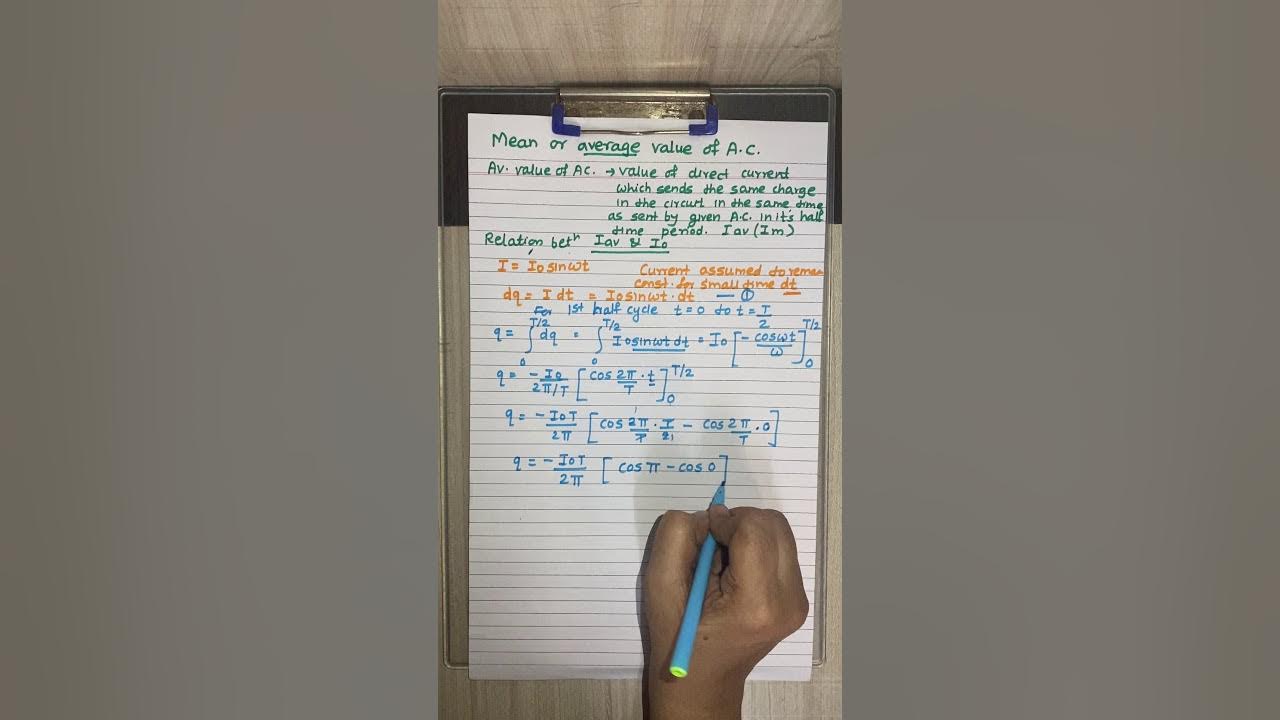 Mean or average value of A.C.
Av. value of AC. → value of direct current
which sends the same charge
in the circuit in the same time
as sent by given A.C. in it's half
time period. Iav (Im)
Relation betn Iav & I₀
I = I₀ sinωt
Current assumed to remai
const. for small time dt
dq = I dt = I₀ sinωt · dt — ①
For 1st half cycle t = 0 to t = T/2
q = ∫₀^T/2 dq = ∫₀^T/2 I₀ sinωt dt = I₀ [ -cosωt/ω ]₀^T/2
q = -I₀/2π/T [ cos 2π/T · t ]₀^T/2
q = -I₀T/2π [ cos 2π/T · T/2 - cos 2π/T · 0 ]
q = -I₀T/2π [ cos π - cos 0 ]